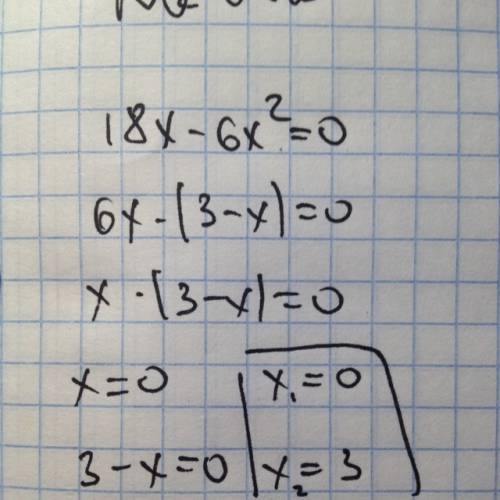 18x - 6x² = 0
6x - (3 - x) = 0
x · (3 - x) = 0
x = 0
3 - x = 0
x₁ = 0
x₂ = 3